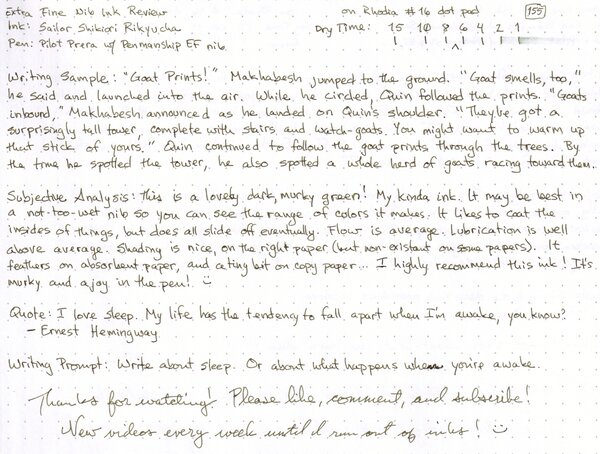 Extra Fine Nib Ink Review on Rhodia #16 dot pad 155
Ink: Sailor Shikiori Rikyucha Dry Time: 15 10 8 6 4 2 1
Pen: Pilot Prera w/ Penmanship EF nib
Writing Sample: "Goat Prints!" Makhabesh jumped to the ground. "Goat smells, too,"
he said and launched into the air. While he circled, Quin followed the prints. "Goats
inbound," Makhabesh announced as he landed on Quin's shoulder. "They've got a
surprisingly tall tower, complete with stairs and watch-goats. You might want to warm up
that stick of yours." Quin continued to follow the goat prints through the trees. By
the time he spotted the tower, he also spotted a whole herd of goats racing toward them.
Subjective Analysis: This is a lovely dark, murky green! My kinda ink. It may be best in
a not-too-wet nib so you can see the range of colors it makes. It likes to coat the
insides of things, but does all slide off eventually. Flow is average. Lubrication is well
above average. Shading is nice, on the right paper (but non-existant on some papers). It
feathers on absorbent paper, and a tiny bit on copy paper... I highly recommend this ink! It's
murky and a joy in the pen! :)
Quote: I love sleep. My life has the tendency to fall apart when I'm awake, you know?
- Ernest Hemingway
Writing Prompt: Write about sleep. Or about what happens when you're awake.
Thanks for watching! Please like, comment, and subscribe!
New videos every week until I run out of inks! :)